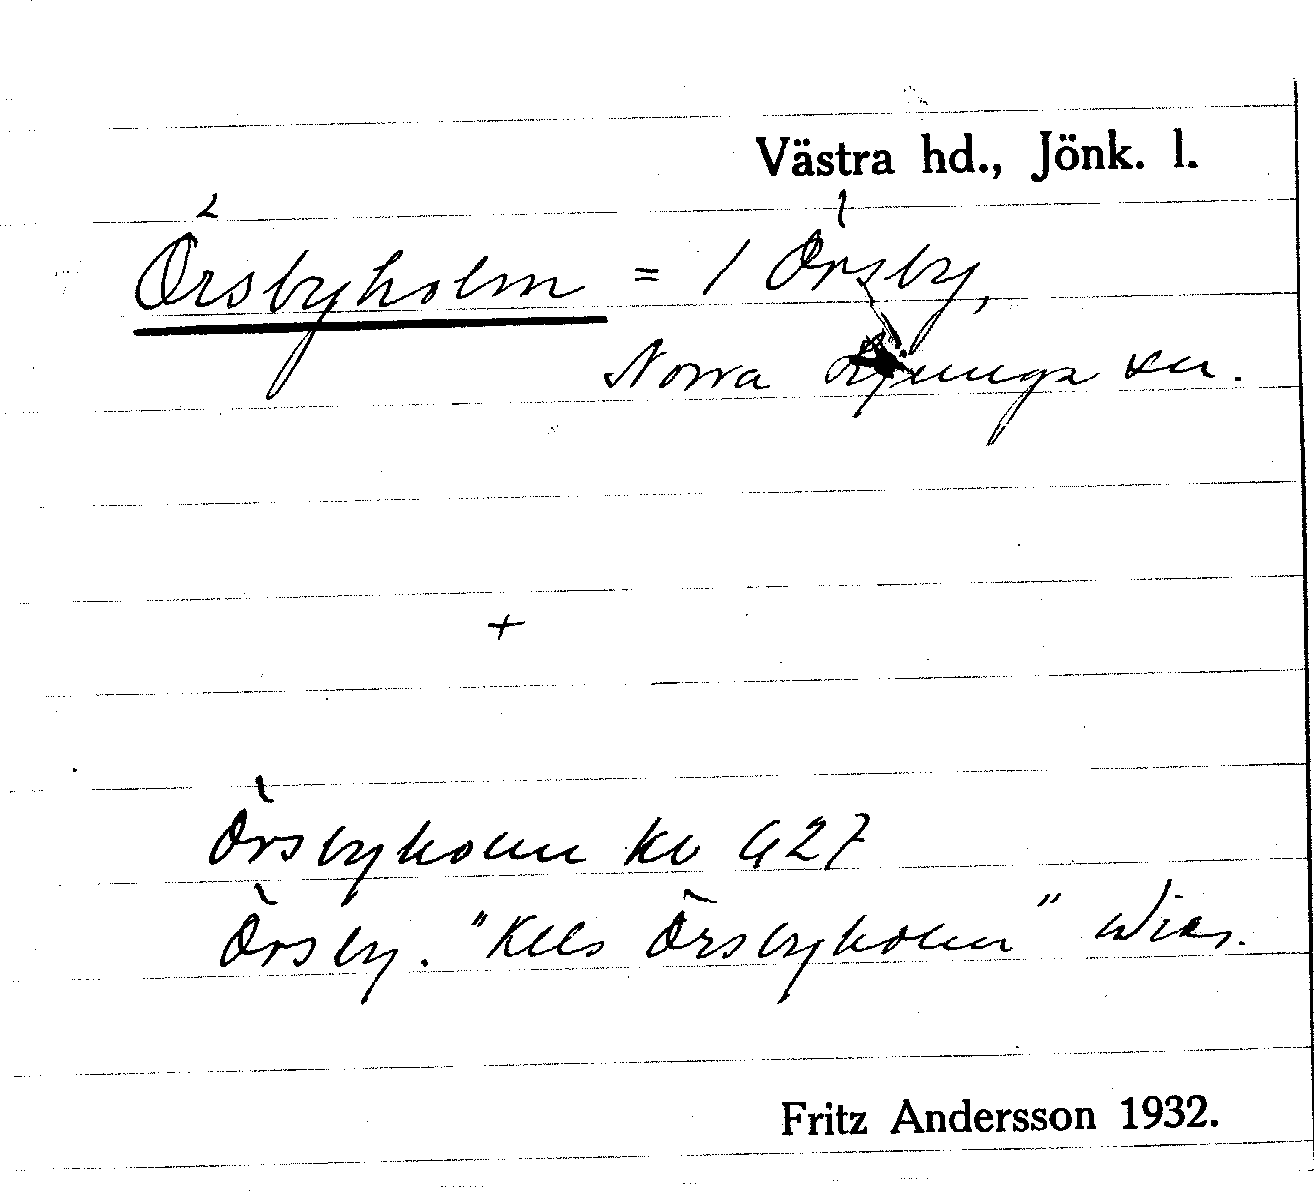 Västra hd., Jönk. l.
2 1
Örsbyholm = 1 Örsby,
Norra Ljunga sn.
+
Örsbyholm kb G27
Örsby. "Kls Örsbyholm"
Fritz Andersson 1932.